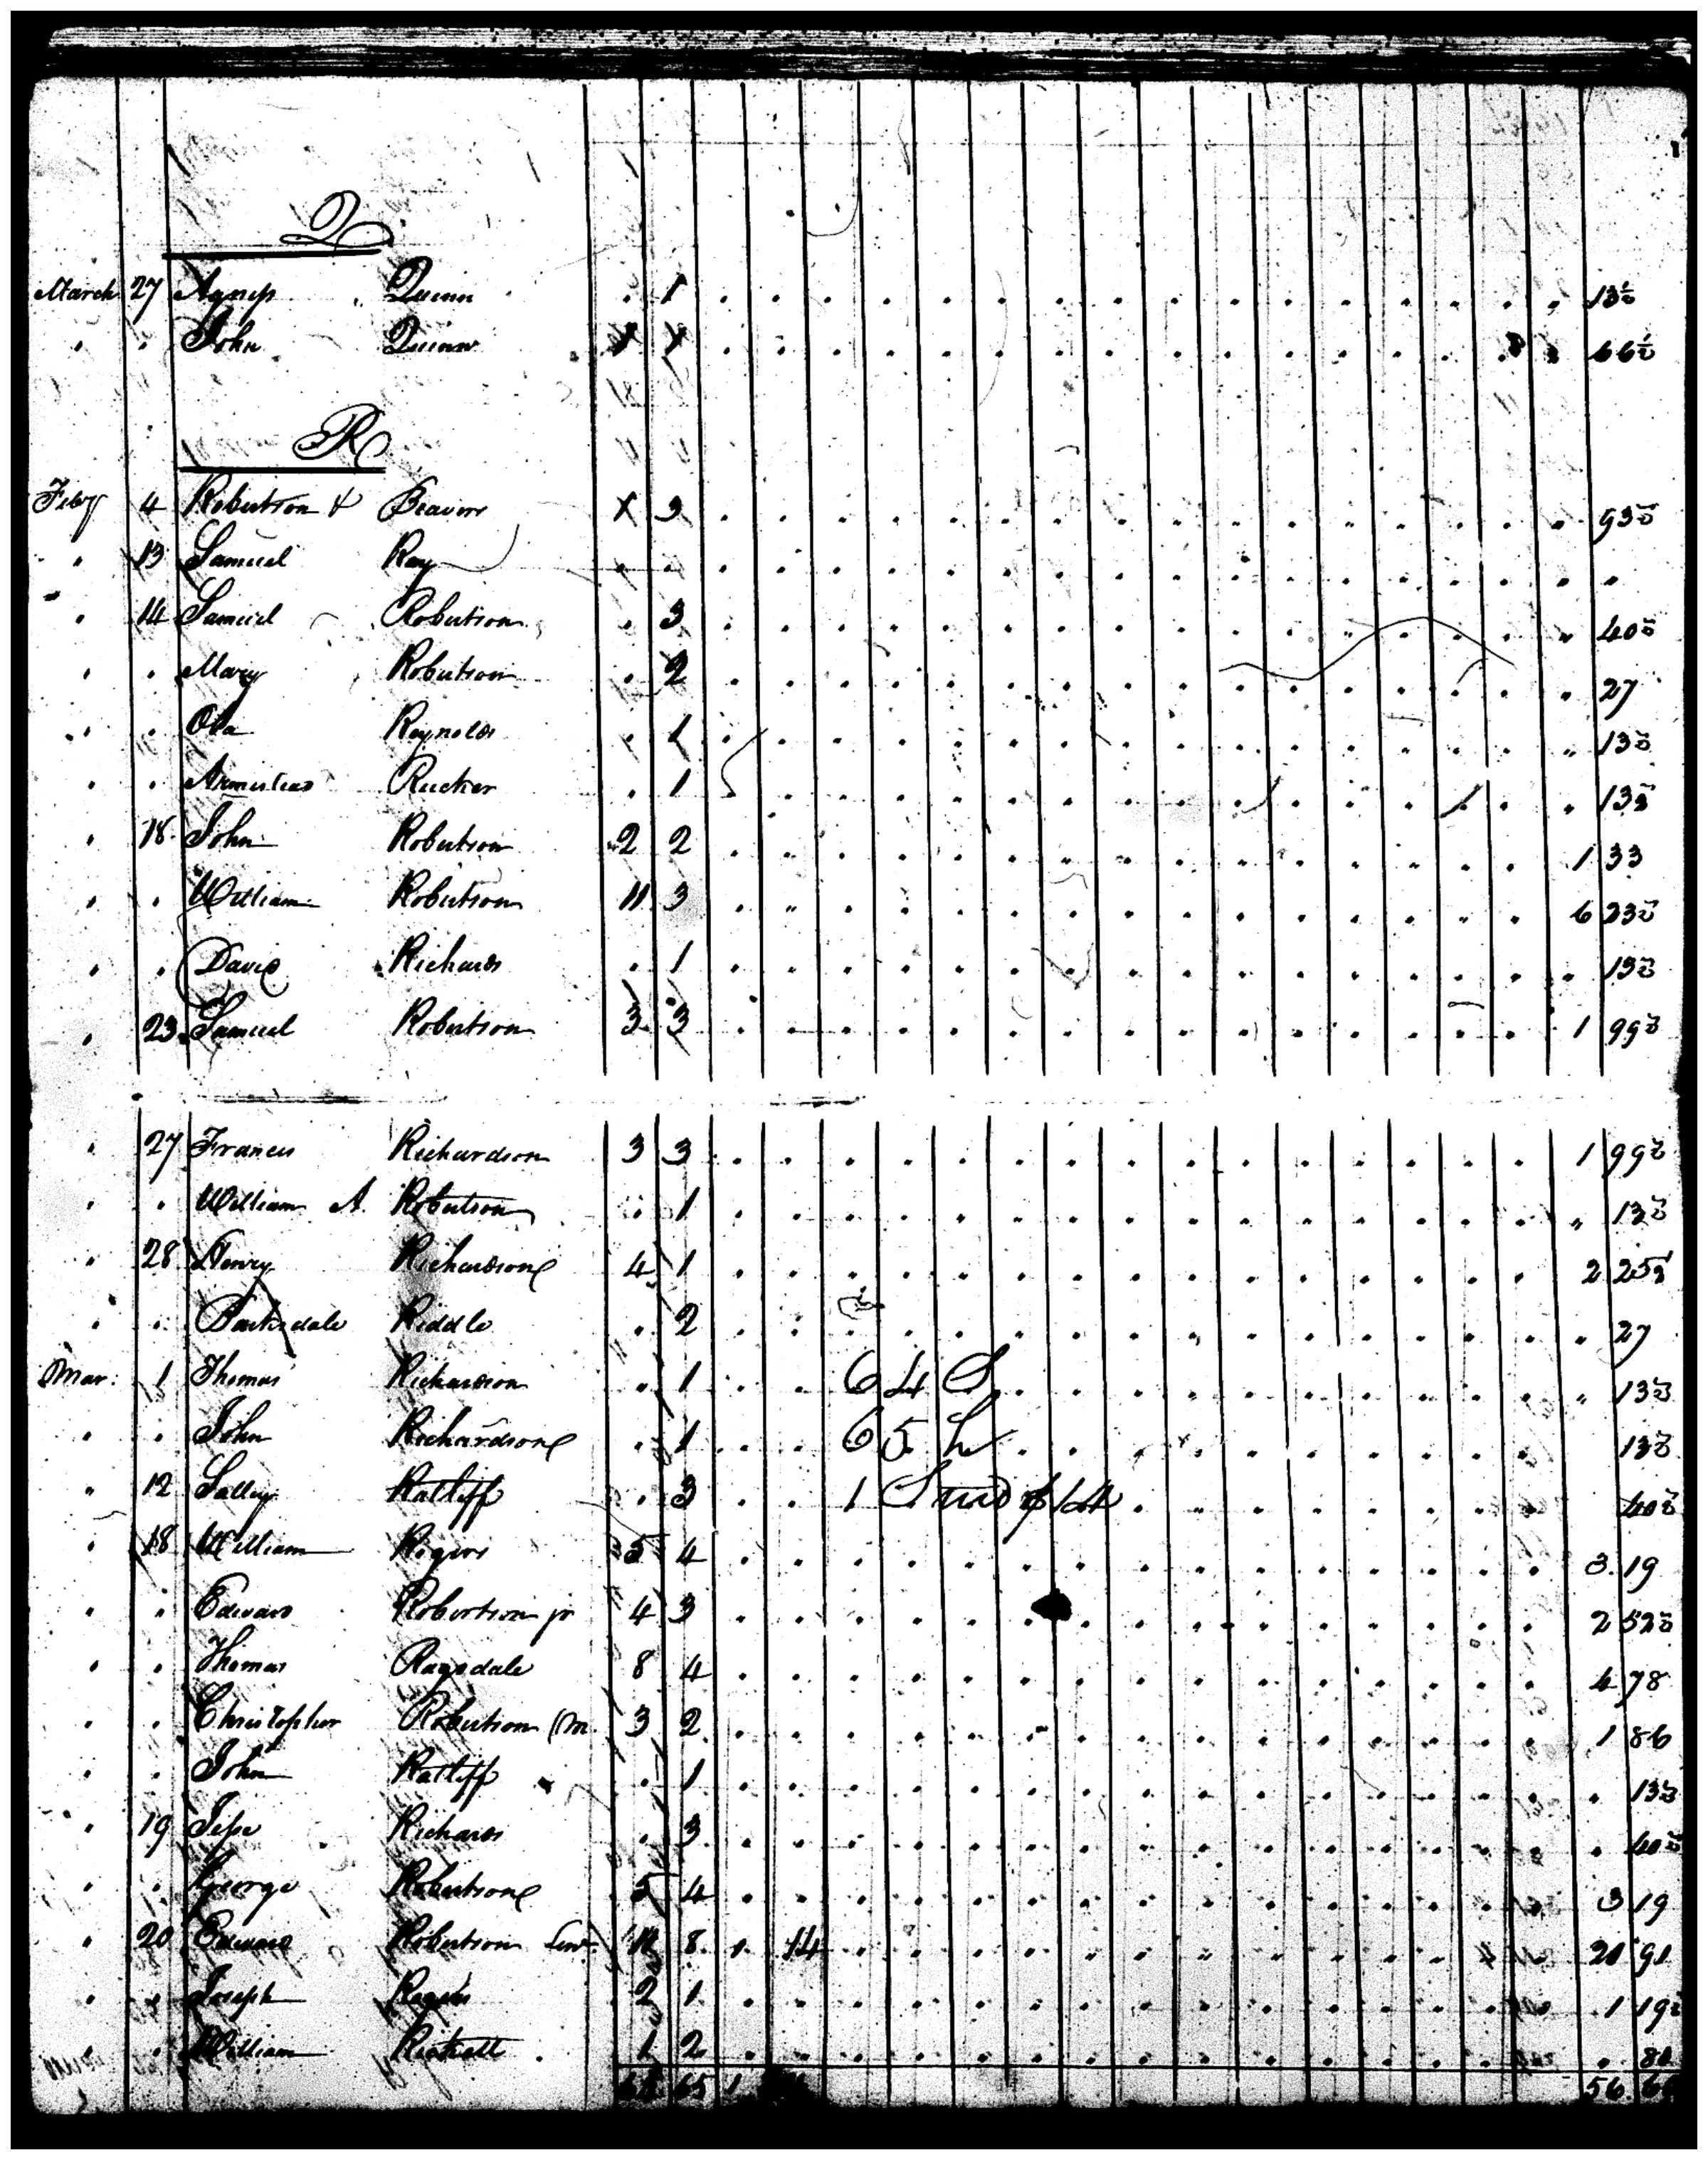 Q
March 27 Agness Quinn . 1 13½
. . John Quinn 1 1 66½
R
Feby 4 Robertson & Beavers X 3 93½
. 13 Samuel Ray
. 14 Samuel Robertson . 3 40½
. . Mary Robertson . 2 27
. . Reynolds . 1 13½
. . Armistead Rucker . 1 13½
. 18 John Robertson 2 2 1 33
. . William Robertson 11 3 6 23½
. . David Richards . 1 13½
. 23 Samuel Robertson 3 3 1 99½
. 27 Francis Richardson 3 3 1 99½
. . William A. Robertson . 1 13½
. 28 Henry Richardson 4 1 2 25½
. . Barksdale Riddle . 2 27
Mar. 1 Thomas Richardson . 1 64 S 13½
. . John Richardson . 1 65 h 13½
. 12 Salley Ratliff . 3 1 Stud $14 40½
. 18 William Rogers 5 4 3 19
. . Edward Robertson jr 4 3 2 52½
. . Thomas Ragsdale 8 4 4 78
. . Christopher Robertson (M 3 2 1 86
. . John Ratliff . 1 13½
. 19 Jesse Richards . 3 40½
. . George Robertson 5 4 3 19
. 20 Edward Robertson Senr. 8 1 14 20 91
. . Joseph Rogers 2 1 1 19½
. . William 1 2 80
65 1 56